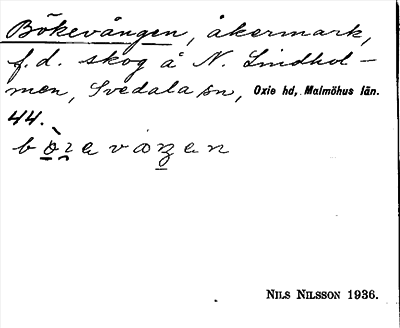 Bökevången, åkermark,
f.d. skog å N. Lindhol-
men, Svedala sn, Oxie hd, Malmöhus län.
44.
NILS NILSSON 1936.